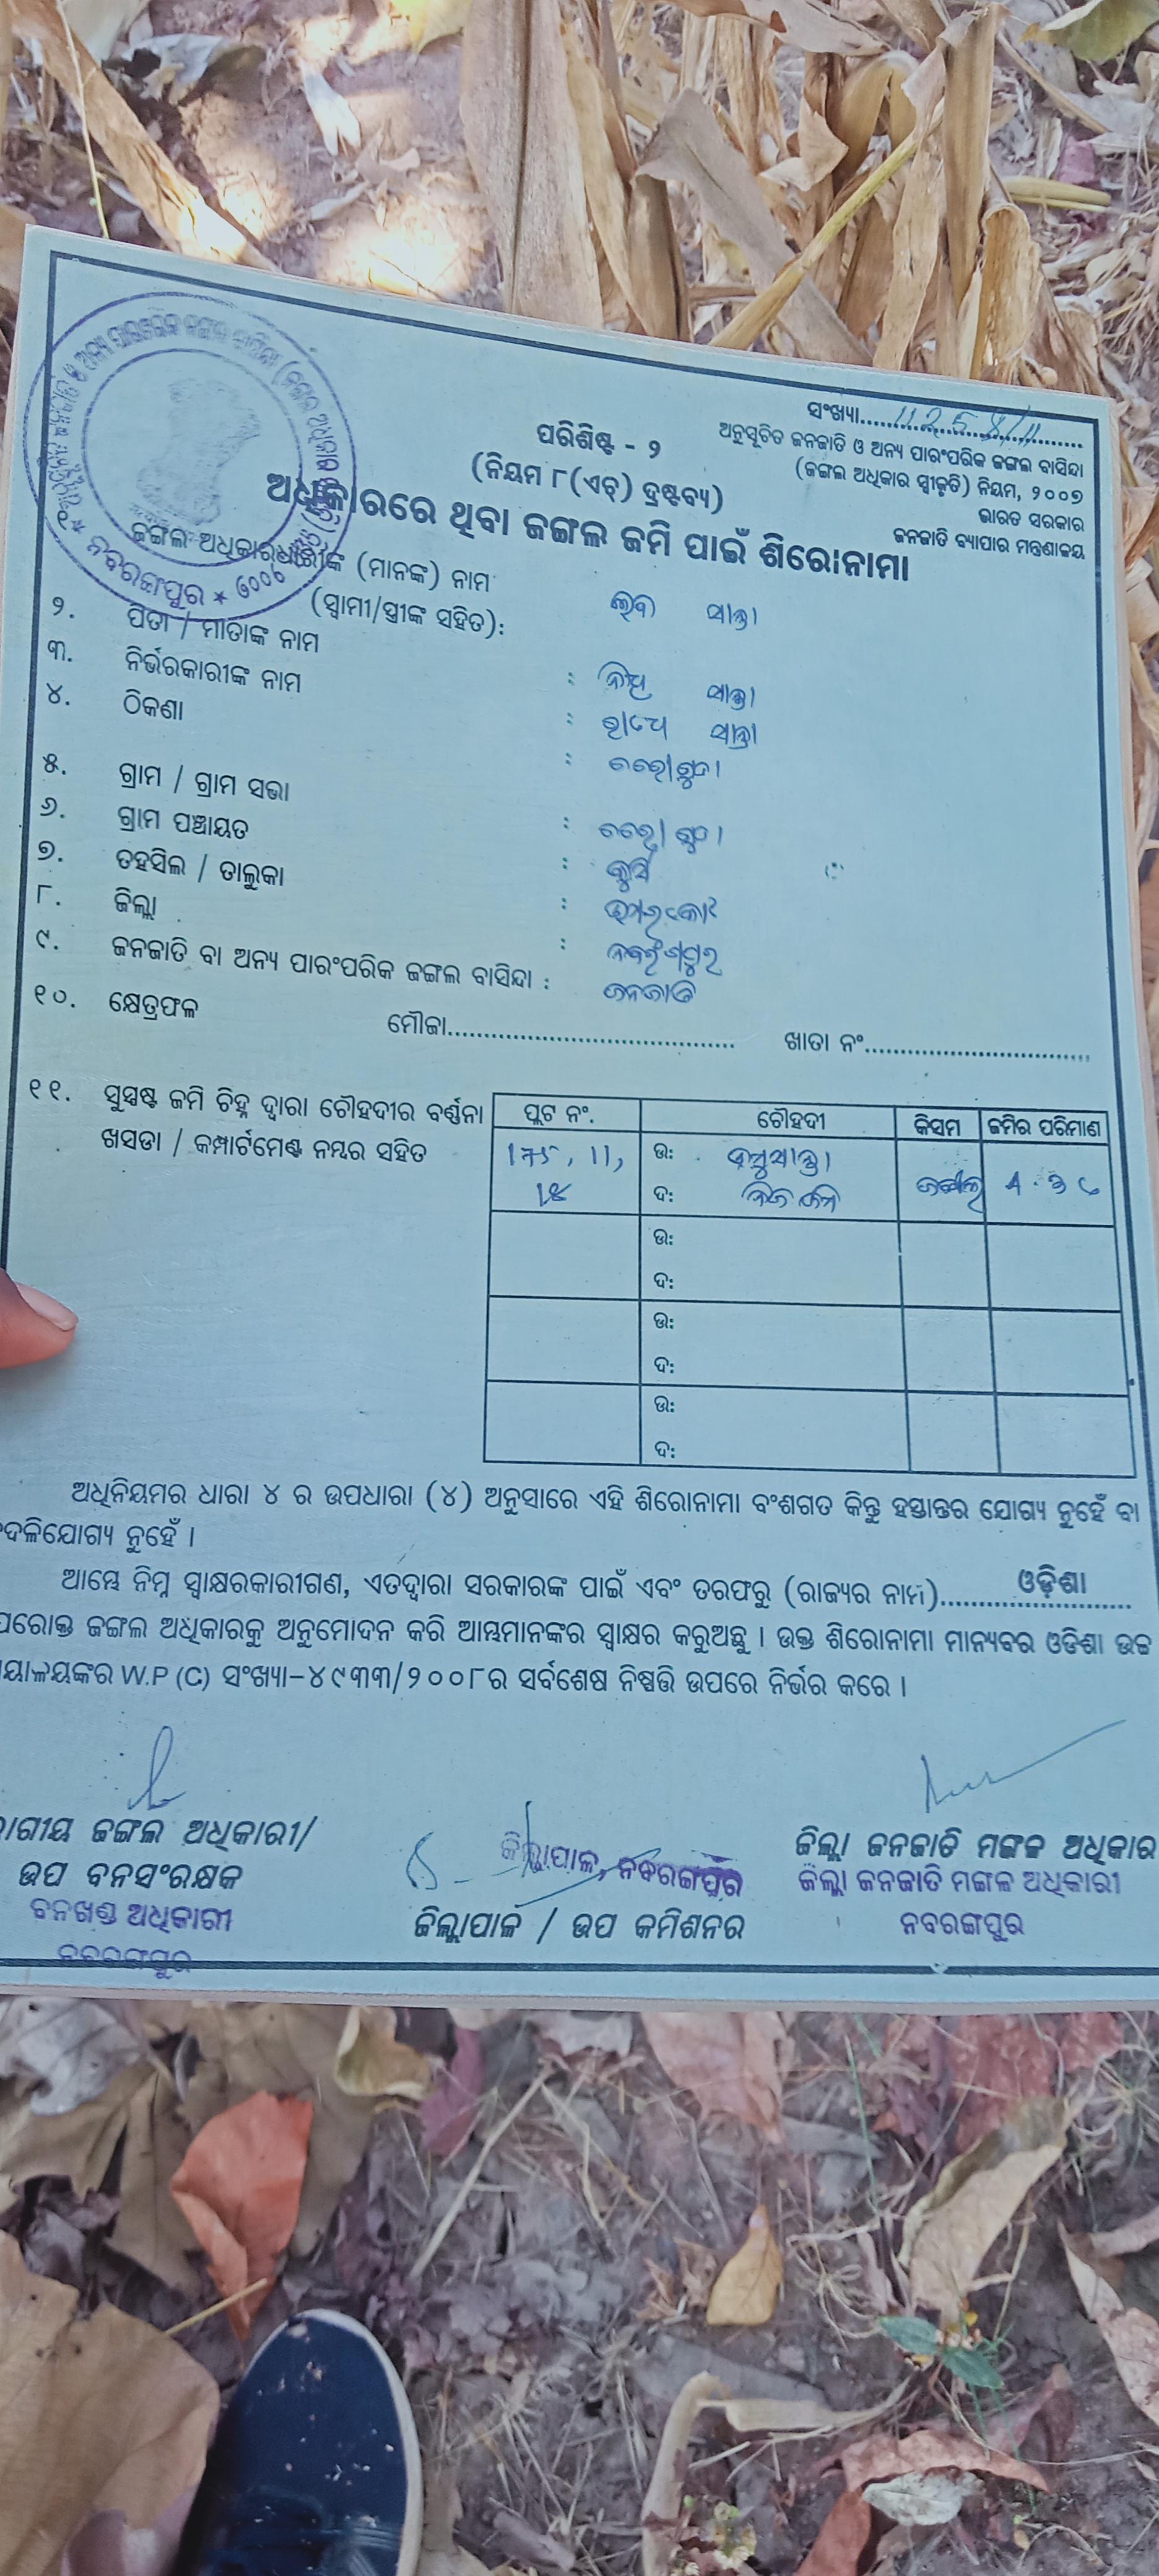 ସଂଖ୍ୟା..............................
ଅନୁସୂଚିତ ଜନଜାତି ଓ ଅନ୍ୟ ପାରଂପରିକ ଜଙ୍ଗଲ ବାସିନ୍ଦା
(ଜଙ୍ଗଲ ଅଧିକାର ସ୍ୱୀକୃତି) ନିୟମ, ୨୦୦୭
ଭାରତ ସରକାର
ଜନଜାତି ବ୍ୟାପାର ମନ୍ତ୍ରଣାଳୟ
ପରିଶିଷ୍ଟ - ୨
(ନିୟମ ୮(ଏଚ୍) ଦ୍ରଷ୍ଟବ୍ୟ)
ଅଧିକାରରେ ଥିବା ଜଙ୍ଗଲ ଜମି ପାଇଁ ଶିରୋନାମା
ନବରଙ୍ଗପୁର
ଜଙ୍ଗଲ ଅଧିକାରଧାରୀଙ୍କ (ମାନଙ୍କ) ନାମ
(ସ୍ୱାମୀ/ସ୍ତ୍ରୀଙ୍କ ସହିତ):
୨. ପିତା / ମାତାଙ୍କ ନାମ :
୩. ନିର୍ଭରକାରୀଙ୍କ ନାମ :
୪. ଠିକଣା :
୫. ଗ୍ରାମ / ଗ୍ରାମ ସଭା :
୬. ଗ୍ରାମ ପଞ୍ଚାୟତ :
୭. ତହସିଲ / ତାଲୁକା : ଉମରକୋଟ
୮. ଜିଲ୍ଲା : ନବରଂଗପୁର
୯. ଜନଜାତି ବା ଅନ୍ୟ ପାରଂପରିକ ଜଙ୍ଗଲ ବାସିନ୍ଦା : ଜନଜାତି
୧୦. କ୍ଷେତ୍ରଫଳ ମୌଜା........................................ ଖାତା ନଂ................................
୧୧. ସୁସ୍ପଷ୍ଟ ଜମି ଚିହ୍ନ ଦ୍ୱାରା ଚୌହଦୀର ବର୍ଣ୍ଣନା
ଖସଡା / କମ୍ପାର୍ଟମେଣ୍ଟ ନମ୍ବର ସହିତ
ପ୍ଲଟ ନଂ. ଚୌହଦୀ କିସମ ଜମିର ପରିମାଣ
ଉ:
ଦ: ନିଜ ଜମି
ଉ:
ଦ:
ଉ:
ଦ:
ଉ:
ଦ:
ଅଧିନିୟମର ଧାରା ୪ ର ଉପଧାରା (୪) ଅନୁସାରେ ଏହି ଶିରୋନାମା ବଂଶଗତ କିନ୍ତୁ ହସ୍ତାନ୍ତର ଯୋଗ୍ୟ ନୁହେଁ ବା
ବଦଳିଯୋଗ୍ୟ ନୁହେଁ ।
ଆମ୍ଭେ ନିମ୍ନ ସ୍ୱାକ୍ଷରକାରୀଗଣ, ଏତଦ୍ୱାରା ସରକାରଙ୍କ ପାଇଁ ଏବଂ ତରଫରୁ (ରାଜ୍ୟର ନାମ)......ଓଡ଼ିଶା......
ପରୋକ୍ତ ଜଙ୍ଗଲ ଅଧିକାରକୁ ଅନୁମୋଦନ କରି ଆମ୍ଭମାନଙ୍କର ସ୍ୱାକ୍ଷର କରୁଅଛୁ । ଉକ୍ତ ଶିରୋନାମା ମାନ୍ୟବର ଓଡିଶା ଉଚ୍ଚ
ୟାଳୟଙ୍କର W.P (C) ସଂଖ୍ୟା-୪୯୩୩/୨୦୦୮ର ସର୍ବଶେଷ ନିଷ୍ପତ୍ତି ଉପରେ ନିର୍ଭର କରେ ।
ଭାଗୀୟ ଜଙ୍ଗଲ ଅଧିକାରୀ/
ଉପ ବନସଂରକ୍ଷକ
ବନଖଣ୍ଡ ଅଧିକାରୀ
ନବରଙ୍ଗପୁର
ଜିଲ୍ଲାପାଳ, ନବରଙ୍ଗପୁର
ଜିଲ୍ଲାପାଳ / ଉପ କମିଶନର
ଜିଲ୍ଲା ଜନଜାତି ମଙ୍ଗଳ ଅଧିକାର
ଜିଲ୍ଲା ଜନଜାତି ମଙ୍ଗଳ ଅଧିକାରୀ
ନବରଙ୍ଗପୁର